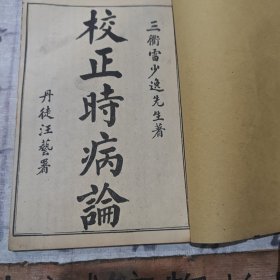 三衢雷少逸先生著
校正時病論
丹徒汪藝署